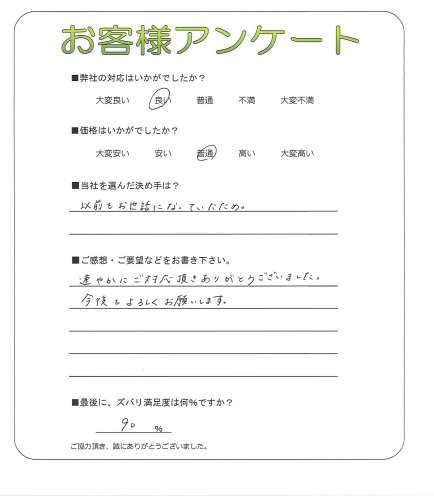 お客様アンケート
■弊社の対応はいかがでしたか？
大変良い 良い 普通 不満 大変不満
■価格はいかがでしたか？
大変安い 安い 普通 高い 大変高い
■当社を選んだ決め手は？
以前もお世話になっていたため。
■ご感想・ご要望などをお書き下さい。
速やかにご対応頂きありがとうございました。
今後もよろしくお願いします。
■最後に、ズバリ満足度は何%ですか？
90 %
ご協力頂き、誠にありがとうございました。